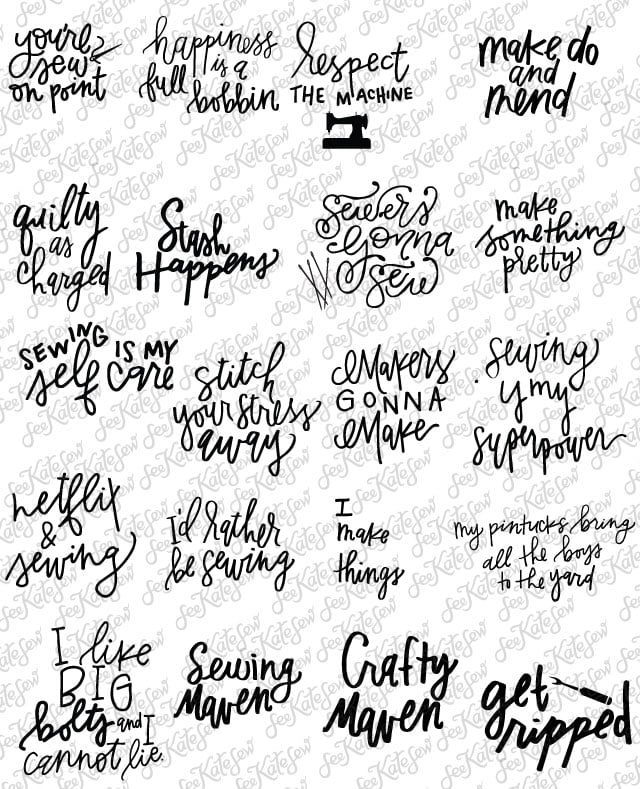 you're
sew
on point
happiness
is a
full
bobbin
respect
THE MACHINE
make do
and
mend
quilty
as
charged
Stash
Happens
Sewers
gonna
sew
make
something
pretty
SEWING IS MY
self care
stitch
your stress
away
Makers
GONNA
Make
sewing
y my
superpower
netflix
&
sewing
I'd rather
be sewing
I
make
things
my pintucks bring
all the boys
to the yard
I like
BIG
bolts and I
cannot lie.
Sewing
Maven
Crafty
Maven
get
ripped
SeeKateSew